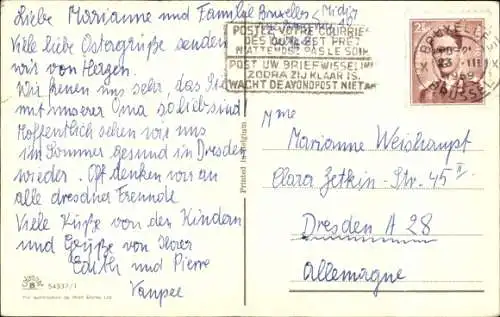 Liebe Marianne und Familie!
Bruxelles - Midi,
Viele liebe Ostergrüße senden
wir von Herzen.
Wir freuen uns sehr, das Sie
mit unserer Oma so lieb sind!
Hoffentlich sehen wir uns
im Sommer gesund in Dresden
wieder. Oft denken wir an
alle dresdner Freunde
Viele Küße von den Kindern
und Grüße von Ihrer
Edith und Pierre
Vanpee
54537/1
Printed in Belgium
POSTEZ VOTRE COURRIER
DES QU'IL EST PRET
N'ATTENDEZ PAS LE SOIR
POST UW BRIEFWISSELING
ZODRA ZIJ KLAAR IS.
WACHT DE AVONDPOST NIET AF
2F
BRUXELLES
23 III
1969
BRUSSEL
Mme
Marianne Weishaupt
Clara Zetkin-Str. 45 II
Dresden A 28
Allemagne